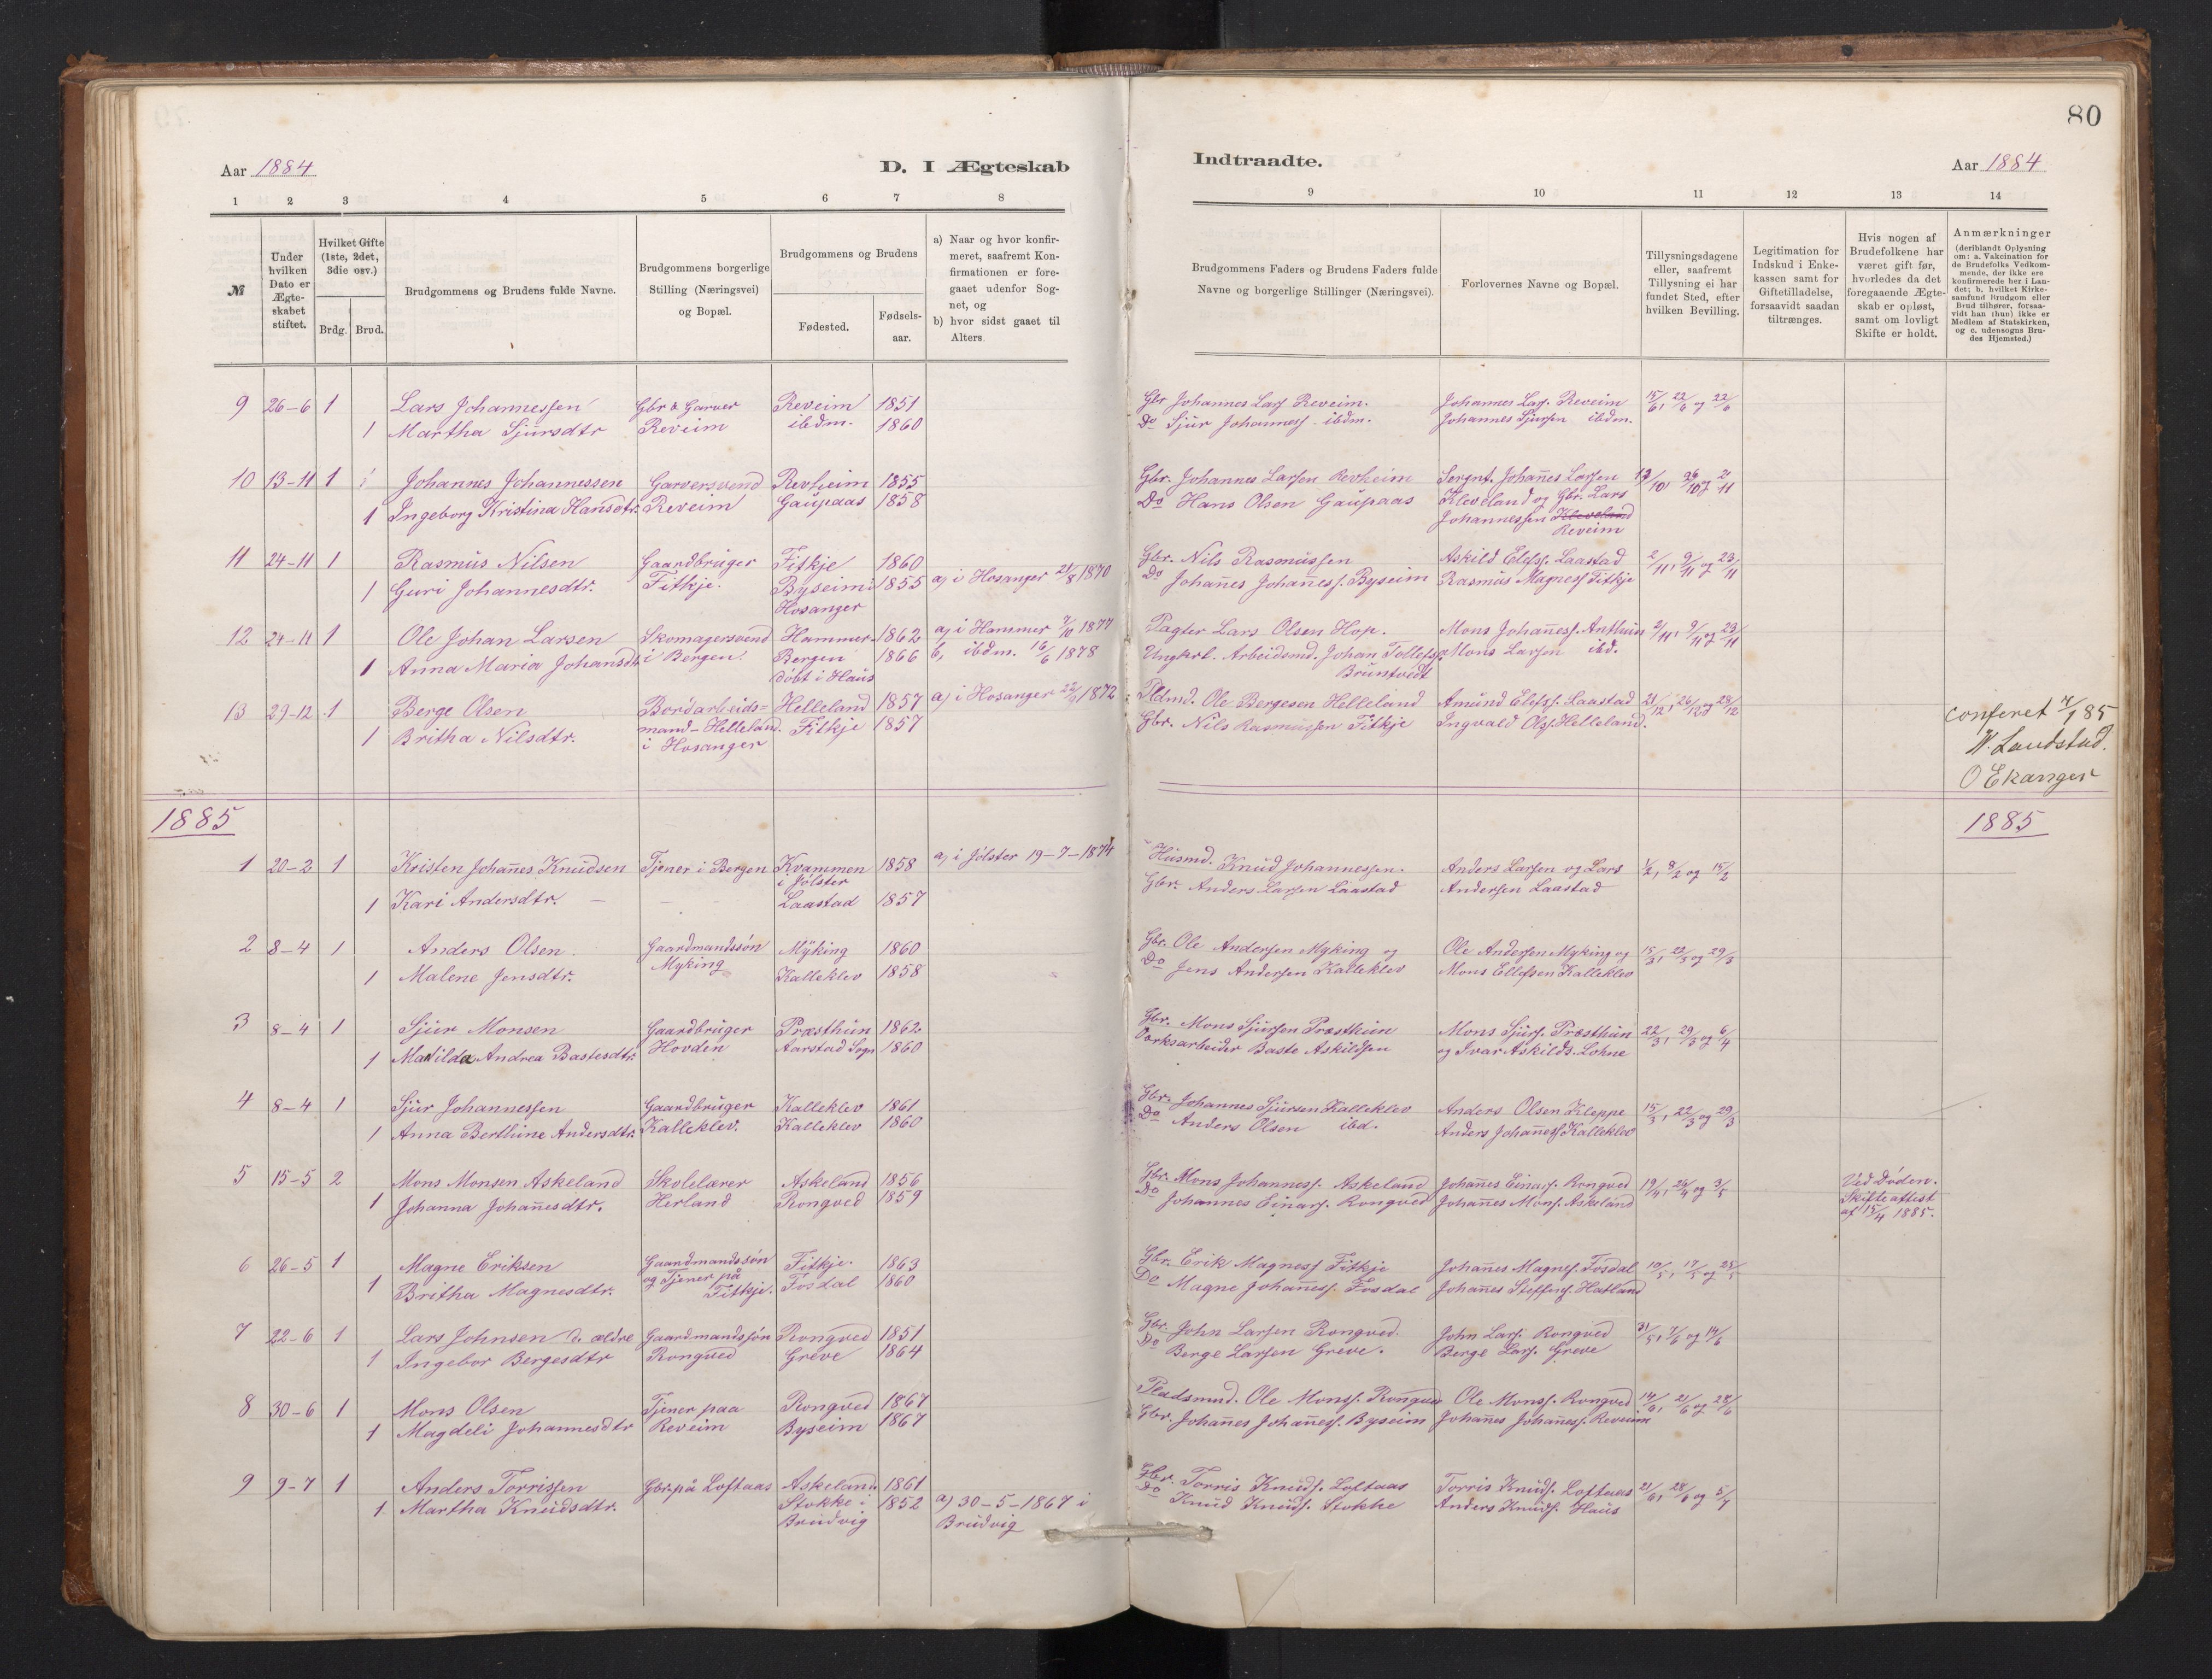 80
Aar 1884
D. I Ægteskab
Indtraadte.
Aar 1884
1 2 3 4 5 6 7 8
9 10 11 12 13 14
№
Under hvilken Dato er Ægteskabet stiftet.
Hvilket Gifte (1ste, 2det, 3die osv.)
Brdg. Brud.
Brudgommens og Brudens fulde Navne.
Brudgommens borgerlige Stilling (Næringsvei) og Bopæl.
Brudgommens og Brudens
Fødested.
Fødselsaar.
a) Naar og hvor konfirmeret, saafremt Konfirmationen er foregaaet udenfor Sognet, og
b) hvor sidst gaaet til Alters.
Brudgommens Faders og Brudens Faders fulde Navne og borgerlige Stillinger (Næringsvei).
Forlovernes Navne og Bopæl.
Tillysningsdagene eller, saafremt Tillysning ei har fundet Sted, efter hvilken Bevilling.
Legitimation for Indskud i Enkekassen samt for Giftetilladelse, forsaavidt saadan tiltrænges.
Hvis nogen af Brudefolkene har været gift før, hvorledes da det foregaaende Ægteskab er opløst, samt om lovligt Skifte er holdt.
Anmærkninger
(deriblandt Oplysning om: a. Vakcination for de Brudefolks Vedkommende, der ikke ere konfirmerede her i Landet; b. hvilket Kirkesamfund Brudgom eller Brud tilhører, forsaavidt han (hun) ikke er Medlem af Statskirken, og c. udensogns Brudes Hjemsted.)
9 26-6 1 Lars Johannesſen Gbr & Garver Reveim 1851 Gbr Johannes Larſ Reveim. Johannes Larſ. Reveim 15/6, 22/6 og 22/6
1 Martha Sjursdtr Reveim ibdm. 1860 Do Sjur Johannesſ. ibdm. Johannes Sjursen ibdm.
10 13-11 1 Johannes Johannessen Garversvend Revheim 1855 Gbr. Johannes Larſen Revheim Sergnt. Johañes Larſen 19/10, 26/10 og 2/11
1 Ingeborg Kristina Hansdtr. Reveim Gaupaas 1858 Do Hans Olsen Gaupaas Kleveland og Gbr. Lars
Johannesſen Kleveland
Reveim
11 24-11 1 Rasmus Nilsen Gaardbruger Fitkje 1860 Gbr. Nils Rasmusſen Askild Elefsſ. Laastad 2/11, 9/11 og 23/11
1 Guri Johannesdtr. Fitkje. Byseim i 1855 a) i Hosanger 21/8 1870 Do Johañes Johañesſ. Byseim Rasmus Magnesſ Fitkje
Hosanger
12 24-11 1 Ole Johan Larsen Skomagersvend Hammer 1862 a) i Hammer 7/10 1877 Pagter Lars Olsen Hop. Mons Johañesſ. Anthun 2/11, 9/11 og 23/11
1 Anna Maria Johansdtr i Bergen. Bergen 1866 b, ibdm. 16/6 1878 Ungkrl. Arbeidsmd. Johan Tollefsſ. Mons Larsen ibd.
døbt i Haus Bruntvedt
13 29-12 1 Berge Olsen Bordarbeids= Helleland 1857 a) i Hosanger 22/9 1872 Pldmd. Ole Bergesen Helleland Amund Elefsſ. Laastad 21/12, 26/12 og 28/12
1 Britha Nilsdtr. mand-Helleland. Fitkje 1857 Gbr. Nils Rasmusſen Fitkje Ingvald Olsſ. Helleland.
i Hosanger
conferet 7/1 85
W. Landstad.
O Ekanger
1885 1885
1 20-2 1 Kristen Johañes Knudsen Tjener i Bergen Kvammen 1858 a) i Jølster 19-7-1874 Husmd. Knud Johannesſen. Anders Larſen og Lars 1/2, 8/2 og 15/2
i Jølster Gbr. Anders Larſen Laastad Anderſen Laastad
1 Kari Andersdtr. — — — Laastad 1857
2 8-4 1 Anders Olsen. Gaardmandssøn Myking 1860 Gbr. Ole Anderſen Myking og Ole Anderſen Myking og 15/3, 22/3 og 29/3
1 Malene Jensdtr. Myking Kalleklev 1858 Do Jens Anderſen Kalleklev Mons Ellefsen Kalleklev
3 8-4 1 Sjur Monsen Gaardbruger Præsthun 1862 Gbr. Mons Sjurſen Præsthun Mons Sjurſ. Præsthun 22/3, 29/3 og 6/4
1 Matilda Andrea Bastesdtr. Hovden Aarstad Sogn 1860 Værksarbeider Baste Askildſen og Ivar Askilds. Lohne
4 8-4 1 Sjur Johannesſen Gaardbruger Kalleklev 1861 Gbr. Johannes Sjursen Kalleklev Anders Olsen Kleppe 15/3, 22/3 og 29/3
1 Anna Berthine Andersdtr. Kalleklev. Kalleklev 1860 Do Anders Olsen ibd. Anders Johañesſ Kalleklev
5 15-5 2 Mons Monsen Askeland Skolelærer Askeland 1856 Gbr. Mons Johannesſ. Askeland Johañes Einarſ. Rongved 19/4, 26/4 og 3/5 Ved Døden.
1 Johanna Johañesdtr. Herland Rongved 1859 Do Johannes Einarſ. Rongved Johañes Monsſ. Askeland Skifteattest
af 15/4 1885.
6 26-5 1 Magne Eriksen Gaardmandssøn Fitkje. 1863 Gbr. Erik Magnesſ Fitkje Johañes Magnesſ. Fosdal 10/5, 17/5 og 25/5
1 Britha Magnesdtr. og Tjener på Fosdal 1860 Do Magne Johañesſ. Fosdal Johañes Steffensſ. Hatland
Fitkje.
7 22-6 1 Lars Johnsen d. ældre Gaardmandsſøn Rongved 1851 Gbr. John Larſen Rongved. John Larſ. Rongved 31/5, 7/6 og 14/6
1 Ingebor Bergesdtr Rongved Greve 1864 Do Berge Larſen Greve. Berge Larſ. Greve
8 30-6 1 Mons Olsen Tjener paa Rongved 1867 Pladsmnd. Ole Monsſ. Rongved Ole Monsſ. Rongved 14/6, 21/6 og 28/6
1 Magdeli Johannesdtr Reveim Byseim 1867 Gbr. Johañes Johañesſ. Byseim Johañes Johañesſ. Reveim
9 9-7 1 Anders Torrisſen Gbr. på Loftaas Askeland 1861 Gbr. Torris Knudſ. Loftaas Torris Knudſ. Loftaas 21/6, 28/6 og 5/7
1 Martha Knudsdtr. Stokke i 1852 a) 30-5-1867 i Do Knud Knudſ. Stokke Anders Knudſ. Haus
Brudvig Brudvig